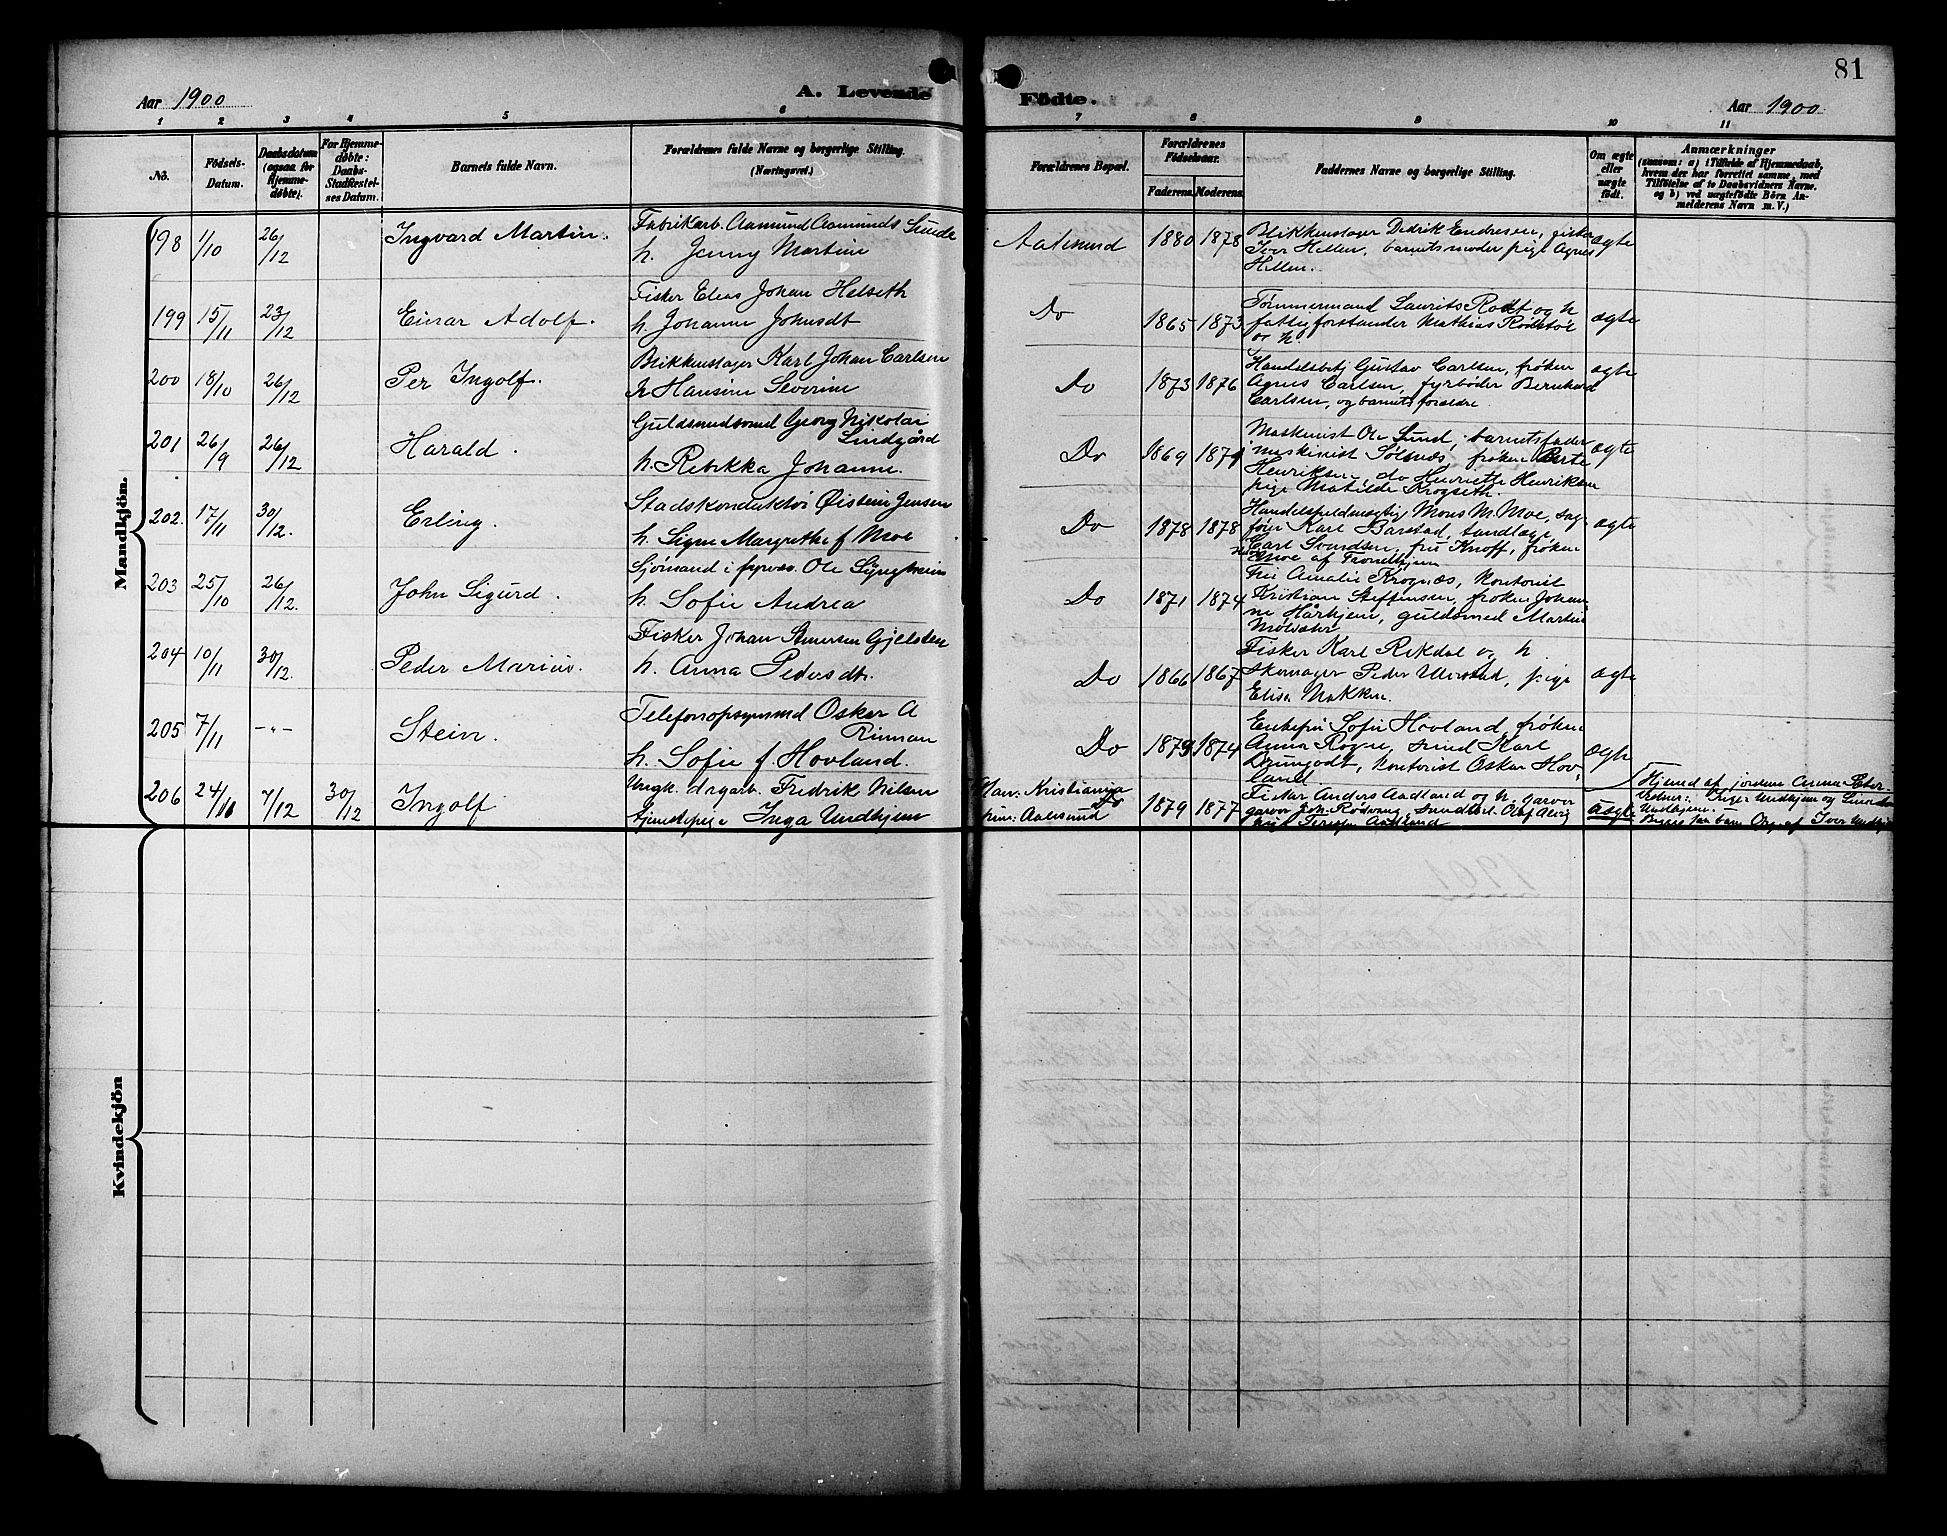 Aar 1900
A. Levende
Födte.
81
Aar 1900.
1 2 3 4 5 6
7 8 9 10 11
No.
Födsels-
Datum.
Daabsdatum
(ogsaa for
Hjemme-
döbte).
For Hjemme-
döbte:
Daabs-
Stadfæstel-
ses Datum.
Barnets fulde Navn.
Forældrenes fulde Navne og borgerlige Stilling.
(Næringsvei.)
Forældrenes Bopæl.
Forældrenes
Födselsaar.
Faderens. Moderens.
Faddernes Navne og borgerlige Stilling.
Om ægte
eller
uægte
födt.
Anmærkninger
(saasom: a) i Tilfælde af Hjemmedaab,
hvem der har forrettet samme, med
Tilföielse af to Daabsvidners Navne,
og b) ved uægtefödte Börn An-
melderens Navn m. V.)
Mandkjön.
198 1/10 26/12 Ingvard Martin.
Fabrikarb. Aamund Aamunds Sunde
h. Jenny Martine
Aalesund 1880 1878
Blikkenslager Dedrik Endresen, fisker
Iver Hellen, barnets moder, pige Agnes
Hellen.
ægte
199 15/11 23/12 Einar Adolf.
Fisker Elias Johan Helseth
h. Johanne Johnsdt
Do 1865 1873
Tømmermand Laurits Rødt og h
fattigforstander Mathias Rødstøl
o. h.
ægte
200 18/10 26/12 Per Ingolf.
Blikkenslager Karl Johan Carlsen
h Hansine Severine
Do 1873 1876
Handelsbetj Gustav Carlsen, frøken
Agnes Carlsen, fyrbøder Bernhard
Carlsen, og barnets forældre
ægte
201 26/9 26/12 Harald.
Guldsmedsvend Georg Nikolai
Lindgård
h. Rebikka Johanne.
Do 1869 1871
Maskinist Ole Lund, barnets fader
maskinist Solsnæs, frøken Berte
Henriksen, do Henriette Henriksen
pige Matilde Krogseth.
ægte
202. 17/11 30/12. Erling.
Stadskonduktør Øistein Jensen
h. Signe Margrethe f Moe
Do 1878 1878
Handelsfuldmægtig Mons M. Moe, sag-
fører Karl Barstad, tandlæge
Carl Svendsen, fru Knoff, frøken
Moe af Trondhjem
ægte
203 25/10 26/12. John Sigurd.
Sjømand i fyrvæs. Ole
h. Sofie Andrea
Do 1871 1874
Fru Amalie Krognæs, kontorist
Kristian Steffensen, frøken Johan-
ne Hårhjem, guldsmed Martin
Molvær
204 10/11 30/12. Peder Marius.
Fisker Johan Gjelsten
h. Anna Pedersdt.
Do 1866 1867
Fisker Karl Rekdal o, h.
Skomager Peder Ulvestad, pige
Elise Makken.
ægte
205 7/11 -"- Stein.
Telefonopsynsmd Oskar A
Rinnan
h. Sofie f. Hovland.
Do 1873 1874
Enkefru Sofie Hovland, frøken
Anna Rogne, smed Karl
kontorist Oskar Hov-
land
ægte
206 24/11 7/12 30/12 Ingolf
Ungk. dagarb. Fredrik Nilsen
tjenestepige Inga Undhjem
Han: Kristiania
hun: Aalesund
Do
1879 1877
Fisker Anders Aadland og h, garver
Aadland
uægte
Hjemd af jordem Anna
Undhjem og
Undhjem.
af Iver Undhjem
Kvindekjön